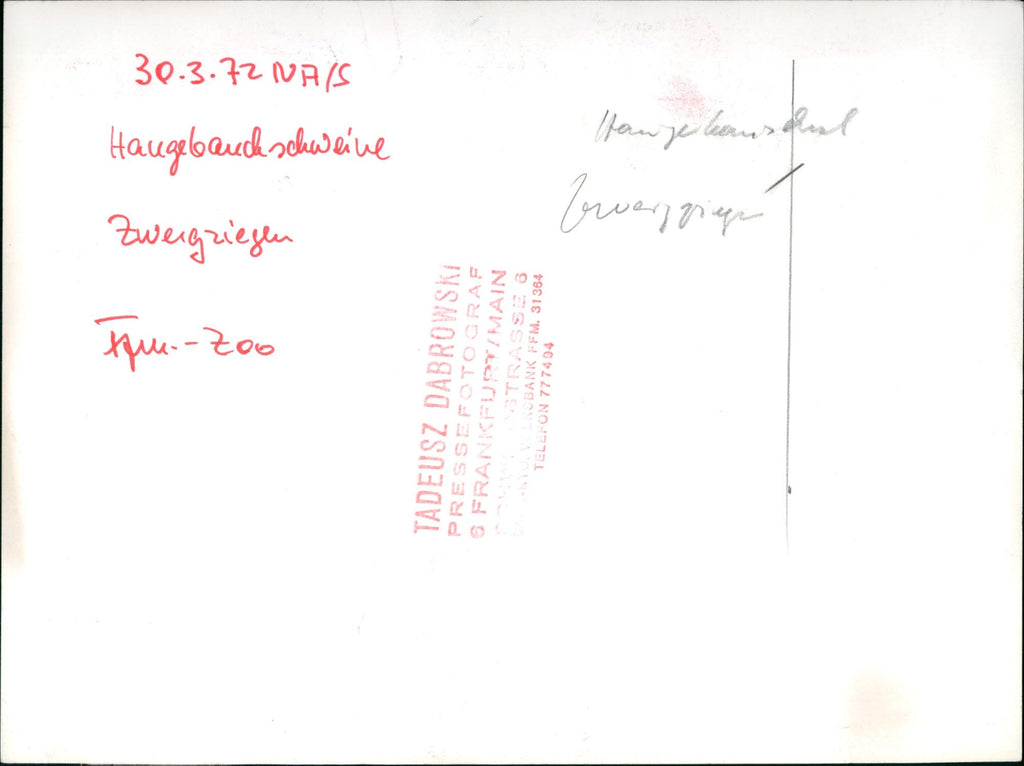 30.3.72 NA/S
Hangebauchschweine
Zwergziegen
Ffm.-Zoo
Hangebauschwl
Zwergziegen
TADEUSZ DABROWSKI
PRESSEFOTOGRAF
6 FRANKFURT/MAIN
STRASSE 6
VOLKSBANK FFM. 31364
TELEFON 777494